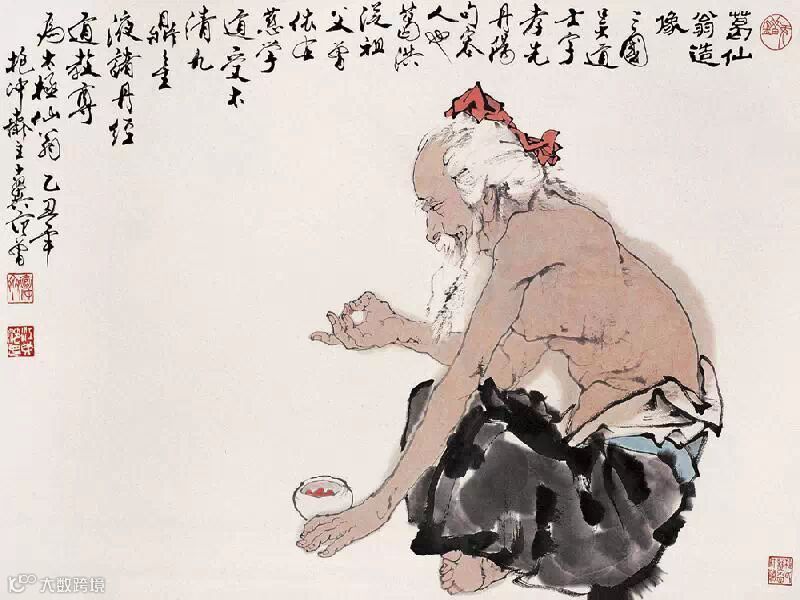 葛仙
翁造
像
三國
吳道
士字
孝先
丹陽
句容
人也
葛洪
從祖
父曾
依左
慈學
道受太
清九
鼎金
液諸丹經
道教尊
為太極仙翁 乙丑年
抱沖齋主十翼范曾
大数跨境